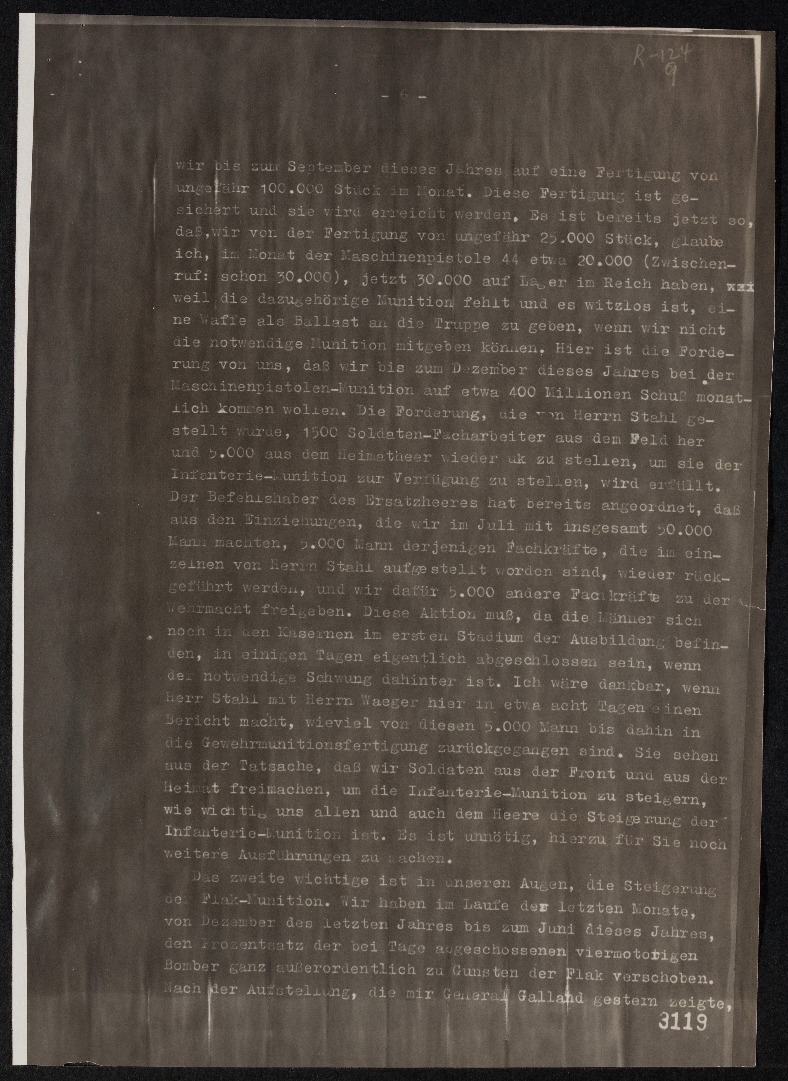 R-124
9
- 6 -
wir bis zum September dieses Jahres auf eine Fertigung von
ungefähr 100.000 Stück im Monat. Diese Fertigung ist ge-
sichert und sie wird erreicht werden. Es ist bereits jetzt so,
daß,wir von der Fertigung von ungefähr 25.000 Stück, glaube
ich, im Monat der Maschinenpistole 44 etwa 20.000 (Zwischen-
ruf: schon 30.000), jetzt 30.000 auf Lager im Reich haben, xxi
weil die dazugehörige Munition fehlt und es witzlos ist, ei-
ne Waffe als Ballast an die Truppe zu geben, wenn wir nicht
die notwendige Munition mitgeben können. Hier ist die Forde-
rung von uns, daß wir bis zum Dezember dieses Jahres bei der
Maschinenpistolen-Munition auf etwa 400 Millionen Schuß monat-
lich kommen wollen. Die Forderung, die von Herrn Stahl ge-
stellt wurde, 1500 Soldaten-Facharbeiter aus dem Feld her
und 5.000 aus dem Heimatheer wieder uk zu stellen, um sie der
Infanterie-Munition zur Verfügung zu stellen, wird erfüllt.
Der Befehlshaber des Ersatzheeres hat bereits angeordnet, daß
aus den Einziehungen, die wir im Juli mit insgesamt 50.000
Mann machten, 5.000 Mann derjenigen Fachkräfte, die im ein-
zelnen von Herrn Stahl aufgestellt worden sind, wieder rück-
geführt werden, und wir dafür 5.000 andere Fachkräfte zu der
Wehrmacht freigeben. Diese Aktion muß, da die Männer sich
noch in den Kasernen im ersten Stadium der Ausbildung befin-
den, in einigen Tagen eigentlich abgeschlossen sein, wenn
der notwendige Schwung dahinter ist. Ich wäre dankbar, wenn
Herr Stahl mit Herrn Waeger hier in etwa acht Tagen einen
Bericht macht, wieviel von diesen 5.000 Mann bis dahin in
die Gewehrmunitionsfertigung zurückgegangen sind. Sie sehen
aus der Tatsache, daß wir Soldaten aus der Front und aus der
Heimat freimachen, um die Infanterie-Munition zu steigern,
wie wichtig uns allen und auch dem Heere die Steigerung der
Infanterie-Munition ist. Es ist unnötig, hierzu für Sie noch
weitere Ausführungen zu machen.
Das zweite wichtige ist in unseren Augen, die Steigerung
der Flak-Munition. Wir haben im Laufe der letzten Monate,
von Dezember des letzten Jahres bis zum Juni dieses Jahres,
den Prozentsatz der bei Tage abgeschossenen viermotorigen
Bomber ganz außerordentlich zu Gunsten der Flak verschoben.
Nach der Aufstellung, die mir General Galland gestern zeigte,
3119